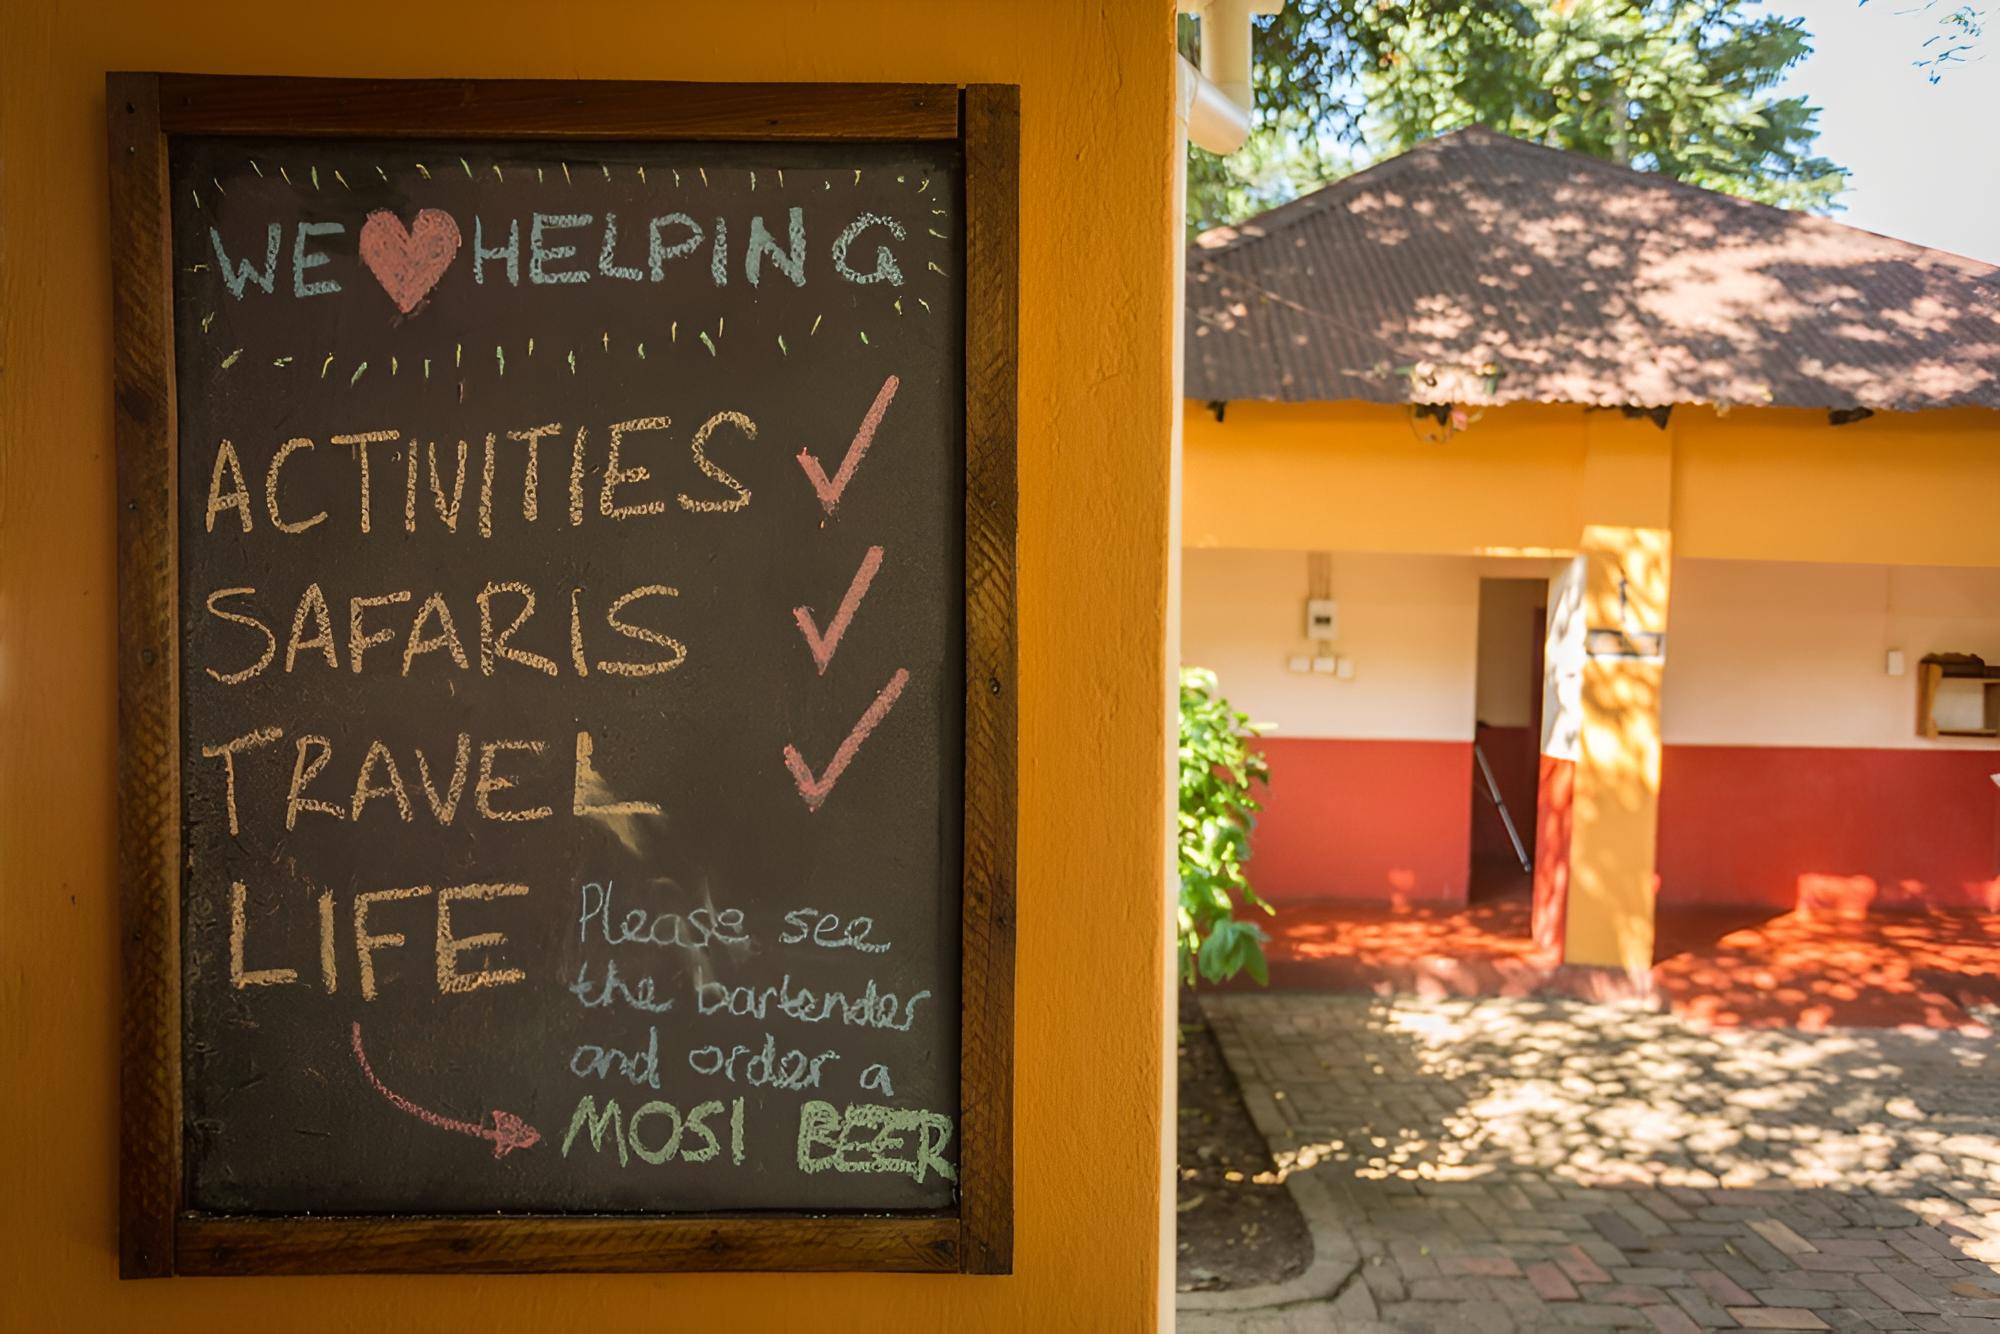 WE ❤ HELPING
ACTIVITIES ✓
SAFARIS ✓
TRAVEL ✓
LIFE
Please see
the bartender
and order a
MOSI BEER